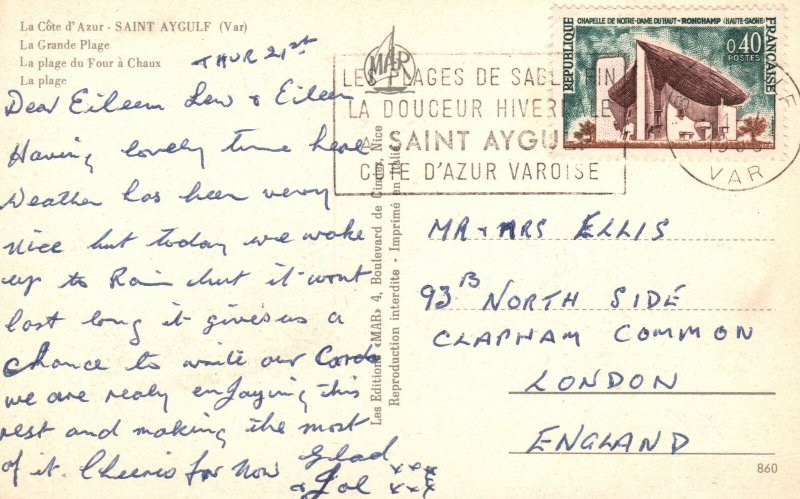 La Côte d'Azur - SAINT AYGULF (Var)
La Grande Plage
La plage du Four à Chaux
La plage
THUR 21st
Dear Eileen Lew & Eileen
Having lovely time here
Weather has been very
nice but today we woke
up to Rain but it wont
last long it gives us a
chance to write our Cards
we are realy enjoying this
rest and making the most
of it. Cheerio for Now Glad
& Jol xxx
xxx
MAR
Les Editions «MAR» 4, Boulevard de Cimiez, Nice
Reproduction interdite - Imprimé en Italie
LES PLAGES DE SABLE FIN
LA DOUCEUR HIVERNALE
A SAINT AYGU
CÔTE D'AZUR VAROISE
CHAPELLE DE NOTRE-DAME DU HAUT - RONCHAMP (HAUTE-SAÔNE)
RÉPUBLIQUE
FRANÇAISE
0,40
POSTES
VAR
MR & MRS ELLIS
93B NORTH SIDE
CLAPHAM COMMON
LONDON
ENGLAND
860